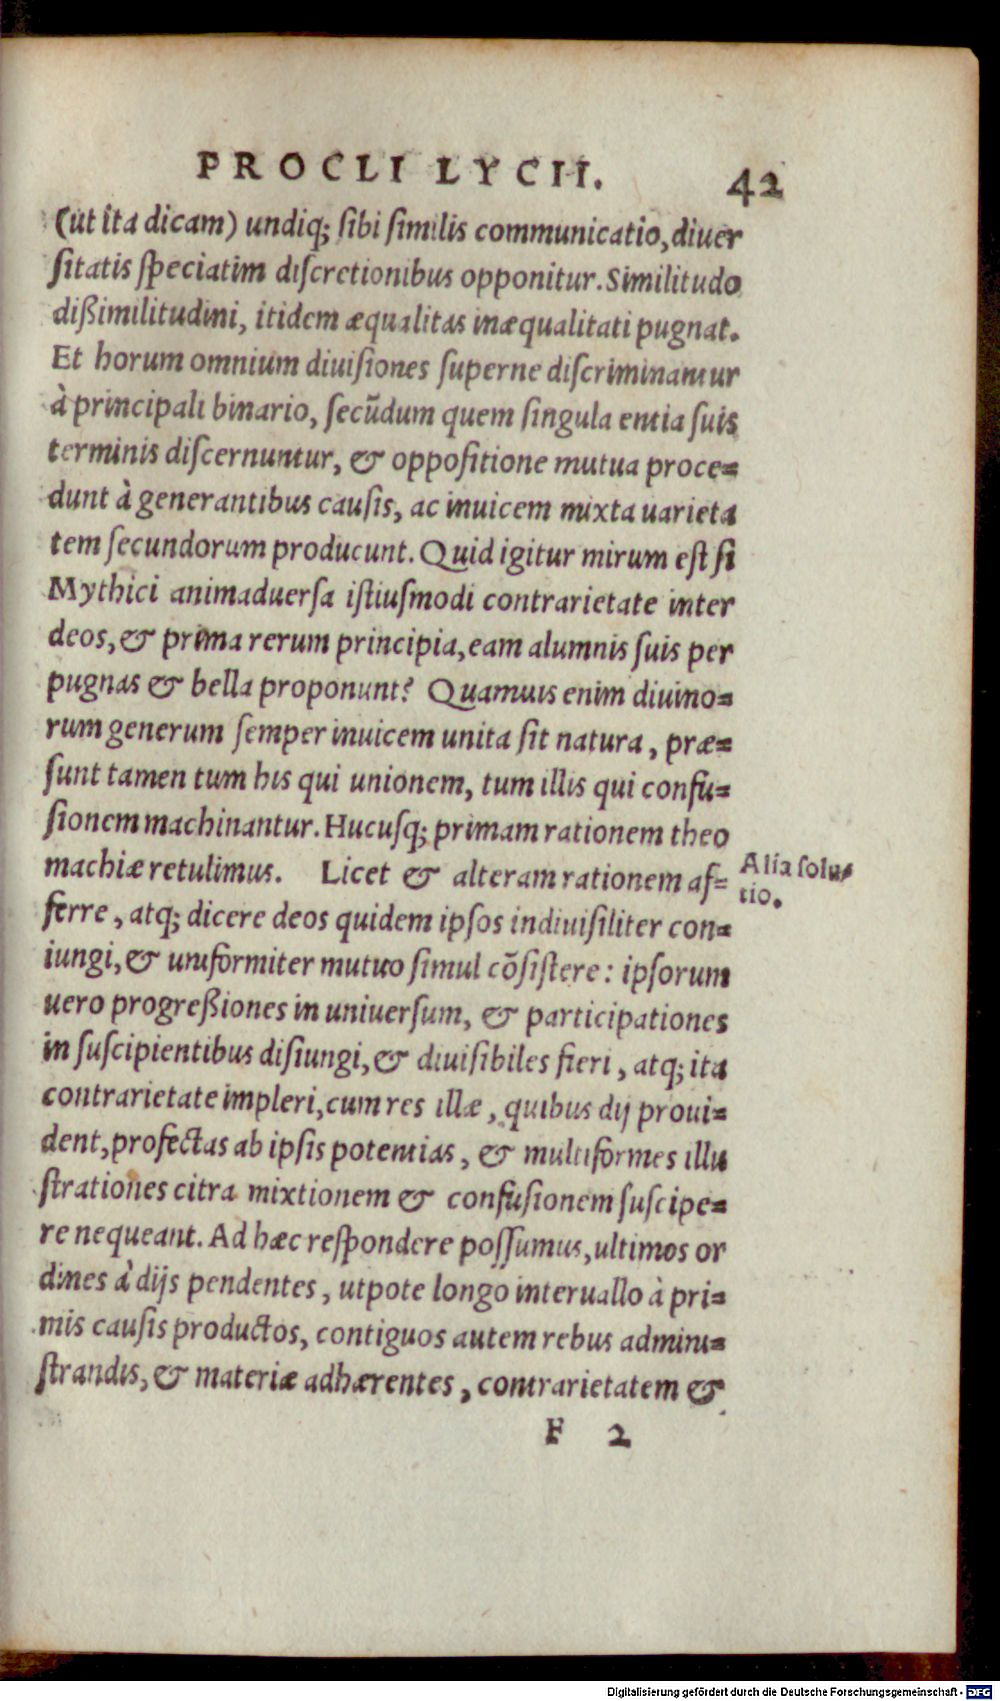 PROCLI LYCII. 42
(ut ita dicam) undiq; sibi similis communicatio, diuer
sitatis speciatim discretionibus opponitur. Similitudo
dißimilitudini, itidem æqualitas inæqualitati pugnat.
Et horum omnium diuisiones superne discriminantur
à principali binario, secũdum quem singula entia suis
terminis discernuntur, & oppositione mutua proce=
dunt à generantibus causis, ac inuicem mixta uarieta
tem secundorum producunt. Quid igitur mirum est si
Mythici animaduersa istiusmodi contrarietate inter
deos, & prima rerum principia, eam alumnis suis per
pugnas & bella proponunt? Quamuis enim diuino=
rum generum semper inuicem unita sit natura, præ=
sunt tamen tum his qui unionem, tum illis qui confu=
sionem machinantur. Hucusq; primam rationem theo
machiæ retulimus. Licet & alteram rationem af=
Alia solu=
tio.
ferre, atq; dicere deos quidem ipsos indiuisiliter con=
iungi, & uniformiter mutuo simul cõsistere: ipsorum
uero progreßiones in uniuersum, & participationes
in suscipientibus disiungi, & diuisibiles fieri, atq; ita
contrarietate impleri, cum res illæ, quibus dij proui=
dent, profectas ab ipsis potentias, & multiformes illu
strationes citra mixtionem & confusionem suscipe=
re nequeant. Ad hæc respondere possumus, ultimos or
dines à dijs pendentes, utpote longo interuallo à pri=
mis causis productos, contiguos autem rebus admini=
strandis, & materiæ adhærentes, contrarietatem &
F 2
Digitalisierung gefördert durch die Deutsche Forschungsgemeinschaft - DFG